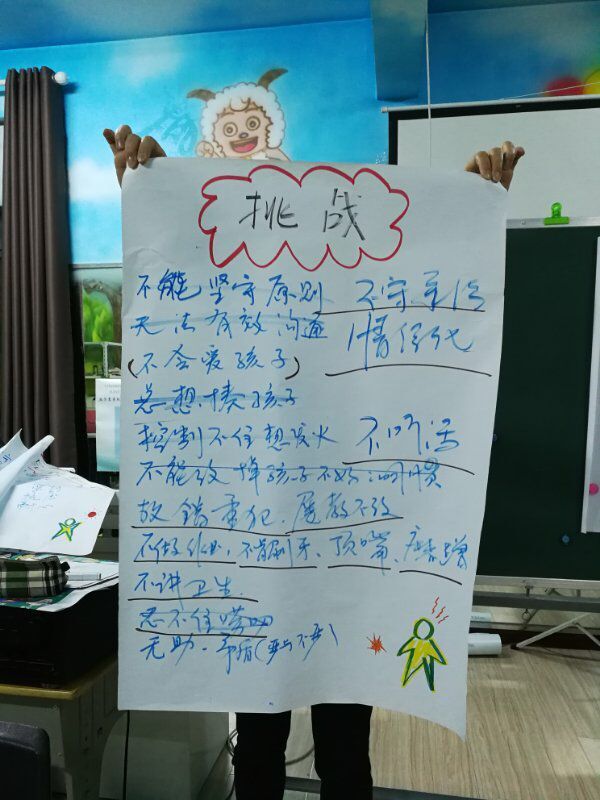 挑战
不能坚守原则 不守承诺
无法有效沟通 情绪化
(不会爱孩子)
总想揍孩子
控制不住想发火 不听话
不能改掉孩子不好习惯
故错重犯、屡教不改
不做作业、不肯刷牙、顶嘴、
不讲卫生.
忍不住唠叨
无助.矛盾(严与不严)